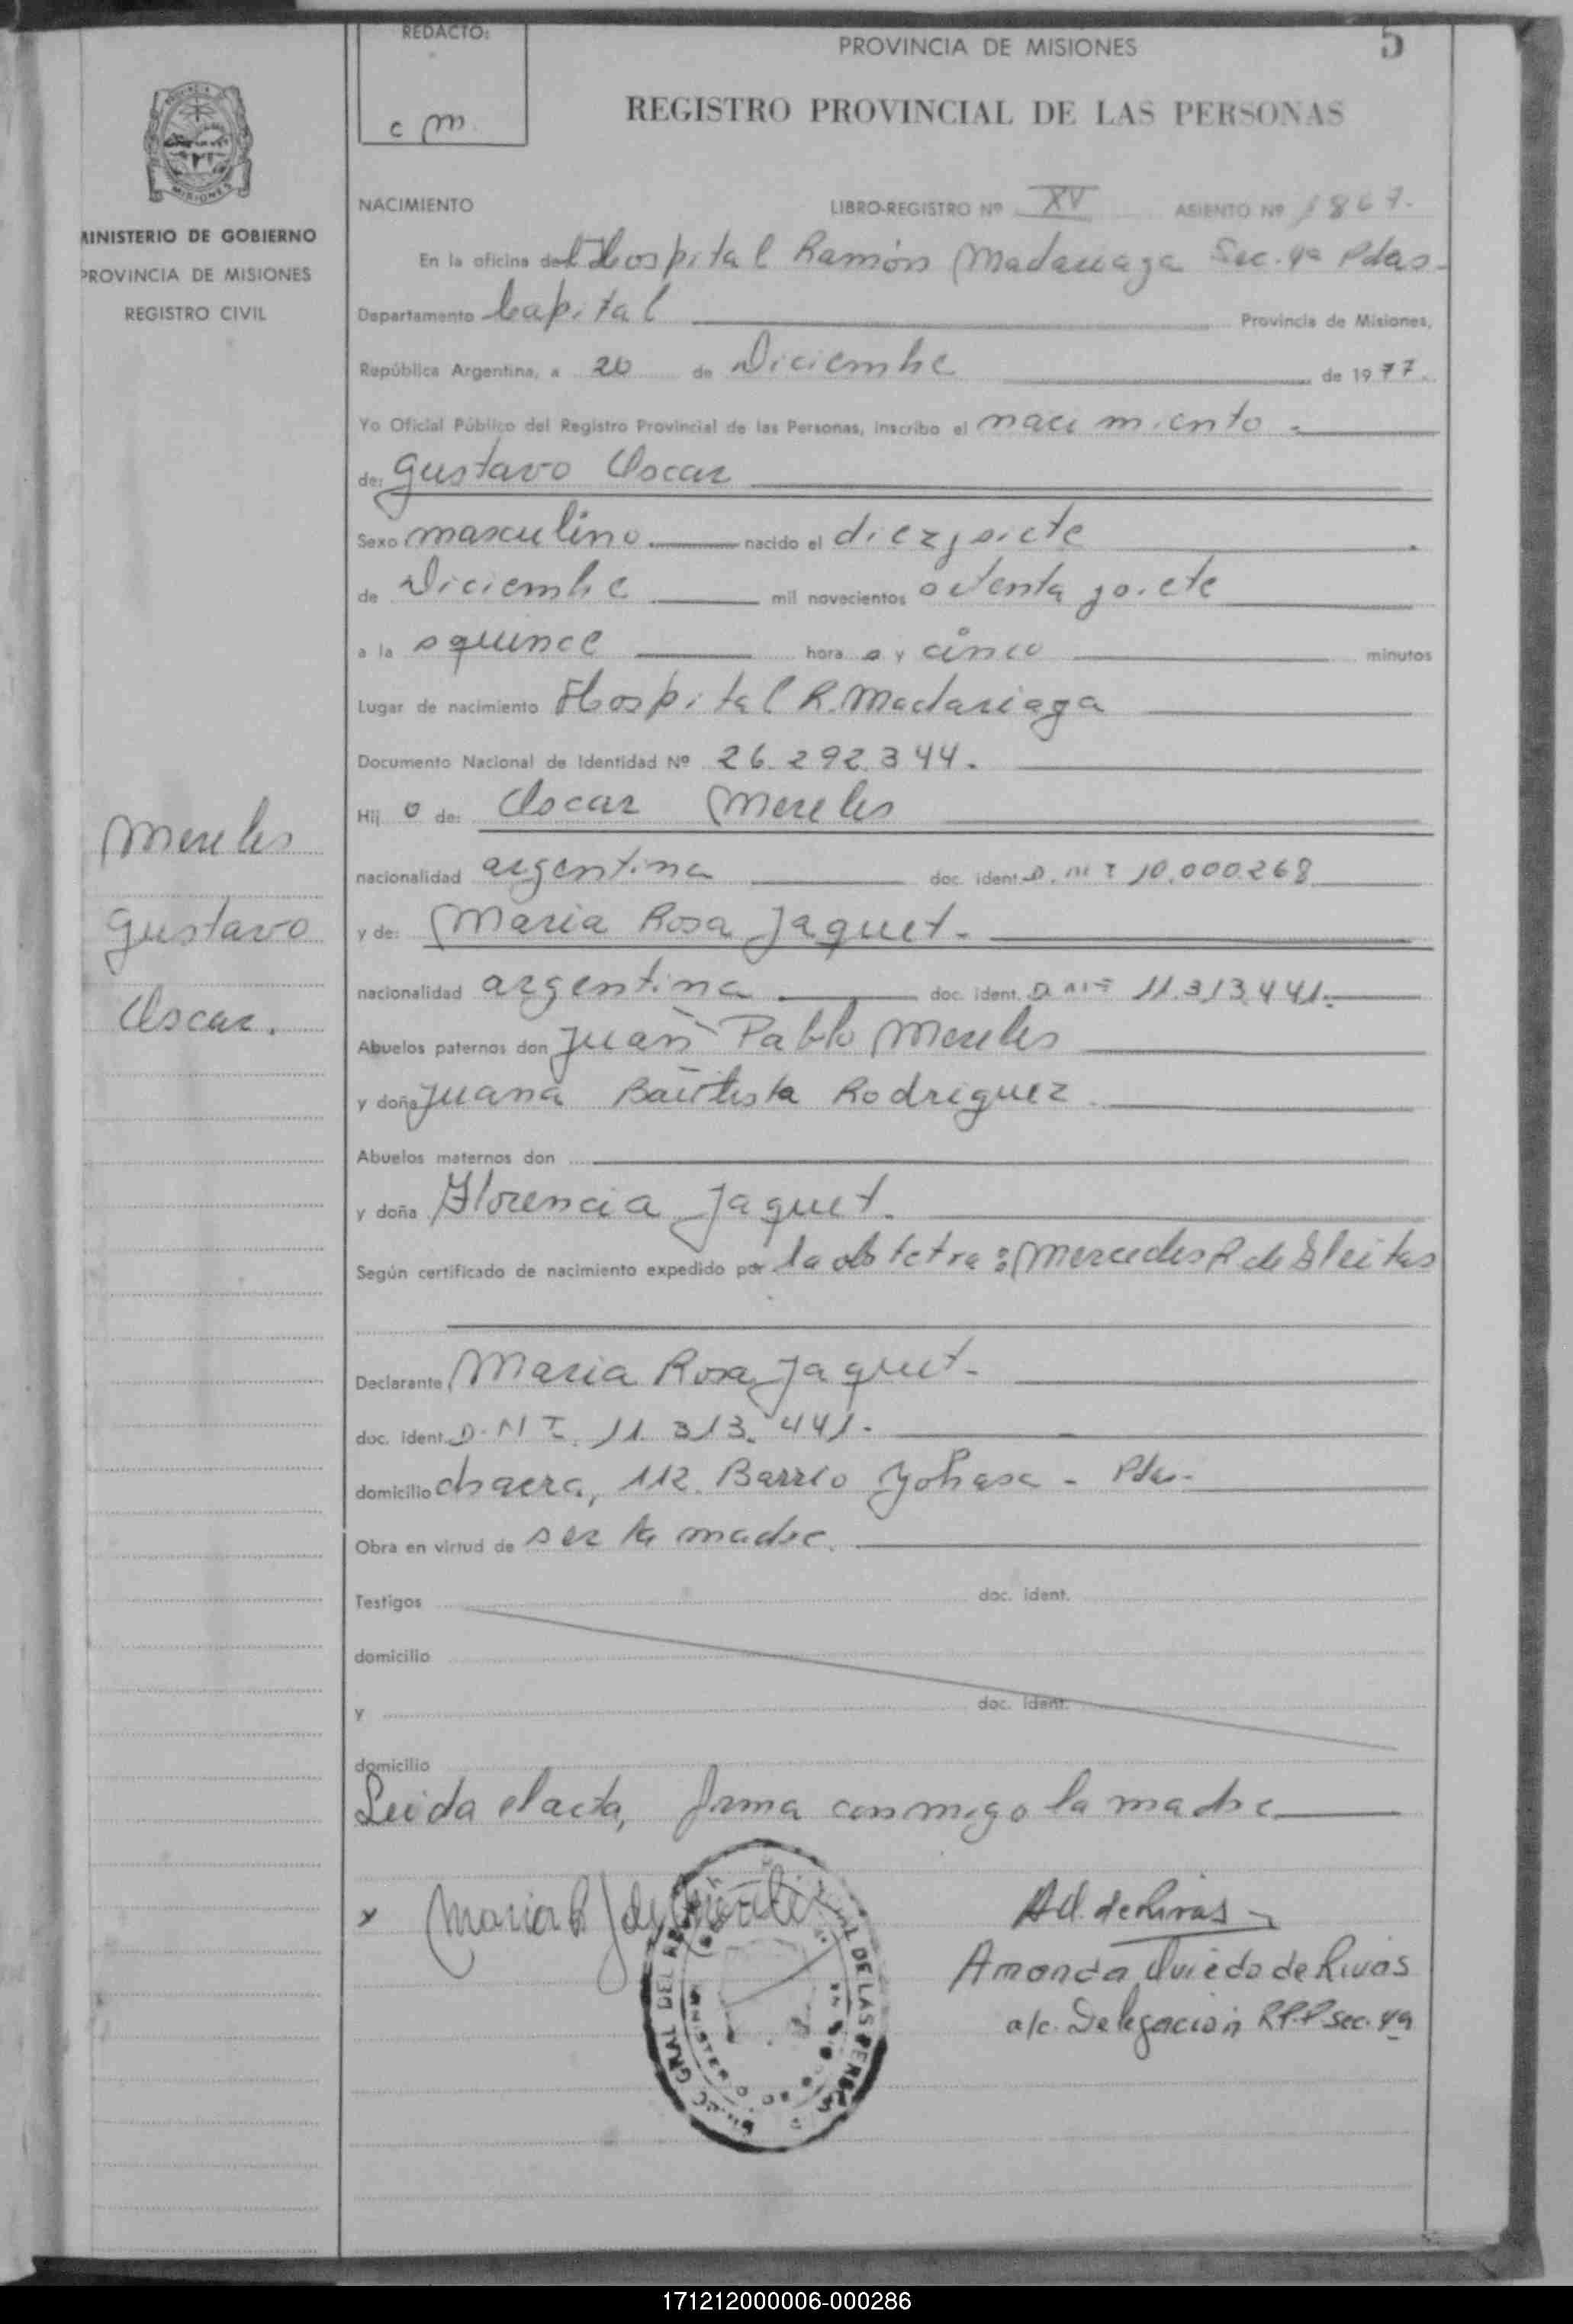 REDACTO:
c m.
PROVINCIA DE MISIONES
5
REGISTRO PROVINCIAL DE LAS PERSONAS
MISIONES
MINISTERIO DE GOBIERNO
PROVINCIA DE MISIONES
REGISTRO CIVIL
NACIMIENTO LIBRO-REGISTRO Nº XV ASIENTO Nº 1867.
En la oficina del Hospital Ramón Madariaga Sec. 4ª Pdas-
Departamento Capital Provincia de Misiones,
República Argentina, a 20 de Diciembre de 1977.
Yo Oficial Público del Registro Provincial de las Personas, inscribo el nacimiento.
de: Gustavo Oscar
Sexo masculino nacido el diezysiete
de Diciembre mil novecientos setenta ysiete
a la s quince hora s y cinco minutos
Lugar de nacimiento Hospital R. Madariaga
Documento Nacional de Identidad Nº 26.292.344.
Hij o de: Oscar Mereles
nacionalidad argentina doc. ident. D.N.I 10.000.268
y de: Maria Rosa Jaquet.
nacionalidad argentina doc. ident. DNI 11.313.441.
Abuelos paternos don Juan Pablo Mereles
y doña Juana Bautista Rodriguez.
Abuelos maternos don
y doña Florencia Jaquet.
Según certificado de nacimiento expedido por la obstetra: Mercedes R de Fleitas
Declarante Maria Rosa Jaquet-
doc. ident. D.N I. 11.313.441.
domicilio chacra, 112. Barrio Yohasa - Pdas-
Obra en virtud de ser la madre.
Testigos doc. ident.
domicilio
y doc. ident.
domicilio
Leida el acta, firma conmigo la madre
x Maria R J de Mereles
A.O. de Rivas
Amanda Oviedo de Rivas
a/c. Delegación R.P.P Sec. 4ª
Mereles
Gustavo
Oscar.
171212000006-000286